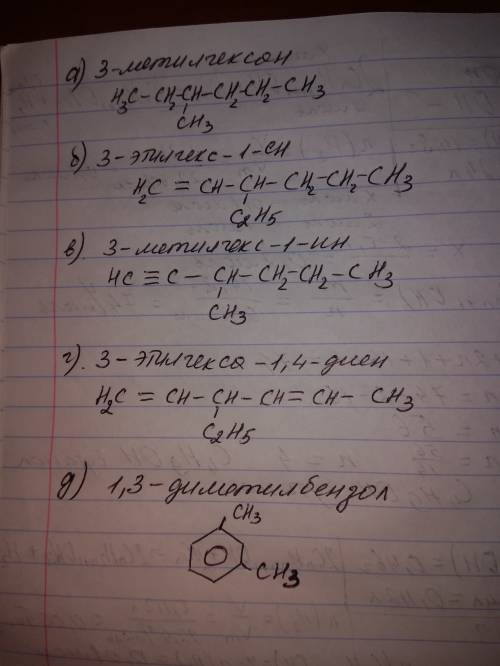 а) 3-метилгексан
H₃C-CH₂-CH-CH₂-CH₂-CH₃
CH₃
б) 3-этилгекс-1-ен
H₂C=CH-CH-CH₂-CH₂-CH₃
C₂H₅
в) 3-метилгекс-1-ин
HC≡C-CH-CH₂-CH₂-CH₃
CH₃
г) 3-этилгекса-1,4-диен
H₂C=CH-CH-CH=CH-CH₃
C₂H₅
д) 1,3-диметилбензол
CH₃
CH₃